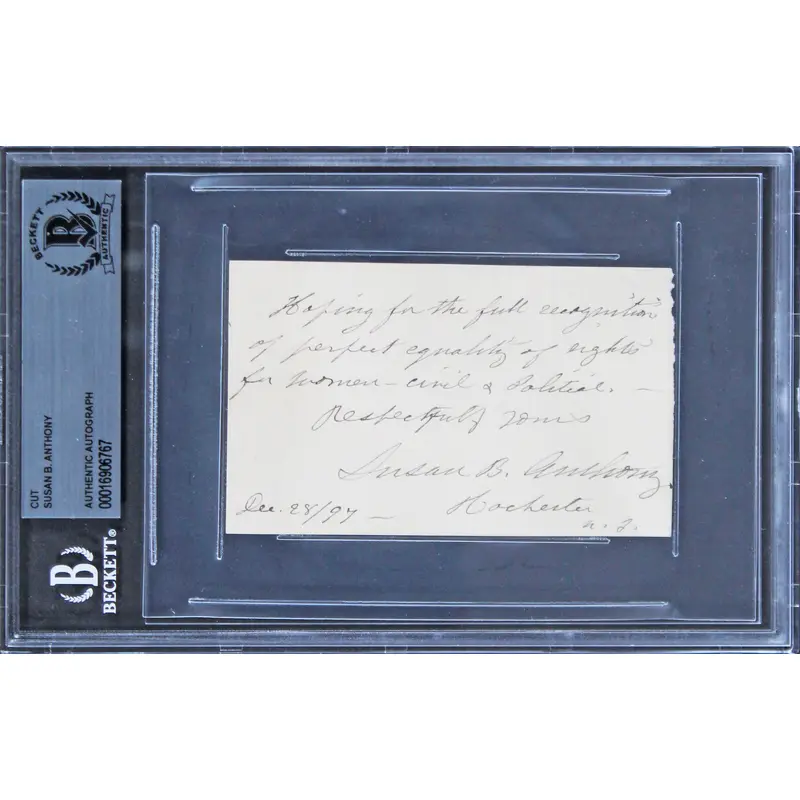 BECKETT
AUTHENTIC
CUT
SUSAN B. ANTHONY
AUTHENTIC AUTOGRAPH
00016906767
BECKETT®
Hoping for the full recognition
of perfect equality of rights
for women – civil & political. –
Respectfully yours
Susan B. Anthony.
Dec. 28/97 – Rochester
N. Y.